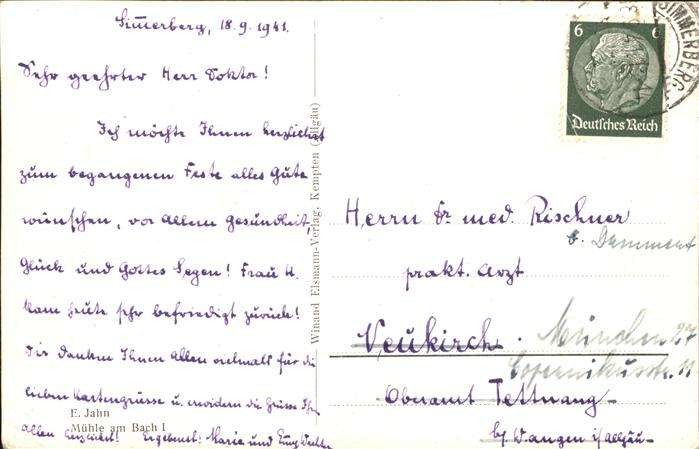 Simmerberg, 18.9.1941.
Sehr geehrter Herr Doktor!
Ich möchte Ihnen herzlichst
zum begangenen Feste alles Gute
wünschen, vor allem Gesundheit,
Glück und Gottes Segen! Frau H.
kam heute sehr befriedigt zurück!
Wir danken Ihnen allen vielmals für die
lieben Kartengrüsse u. erwidern die Grüsse Ihnen
allen herzlichst! Ergebenst: Maria und
E. Jahn
Mühle am Bach I
Winand Elsmann-Verlag, Kempten (Allgäu)
SIMMERBERG
6 6
Deutsches Reich
Herrn Dr med. Rischner
prakt. Arzt
Neukirch. München 27
Kopernikusstr. 11
Oberamt Tettnang
bei Wangen i/Allgäu